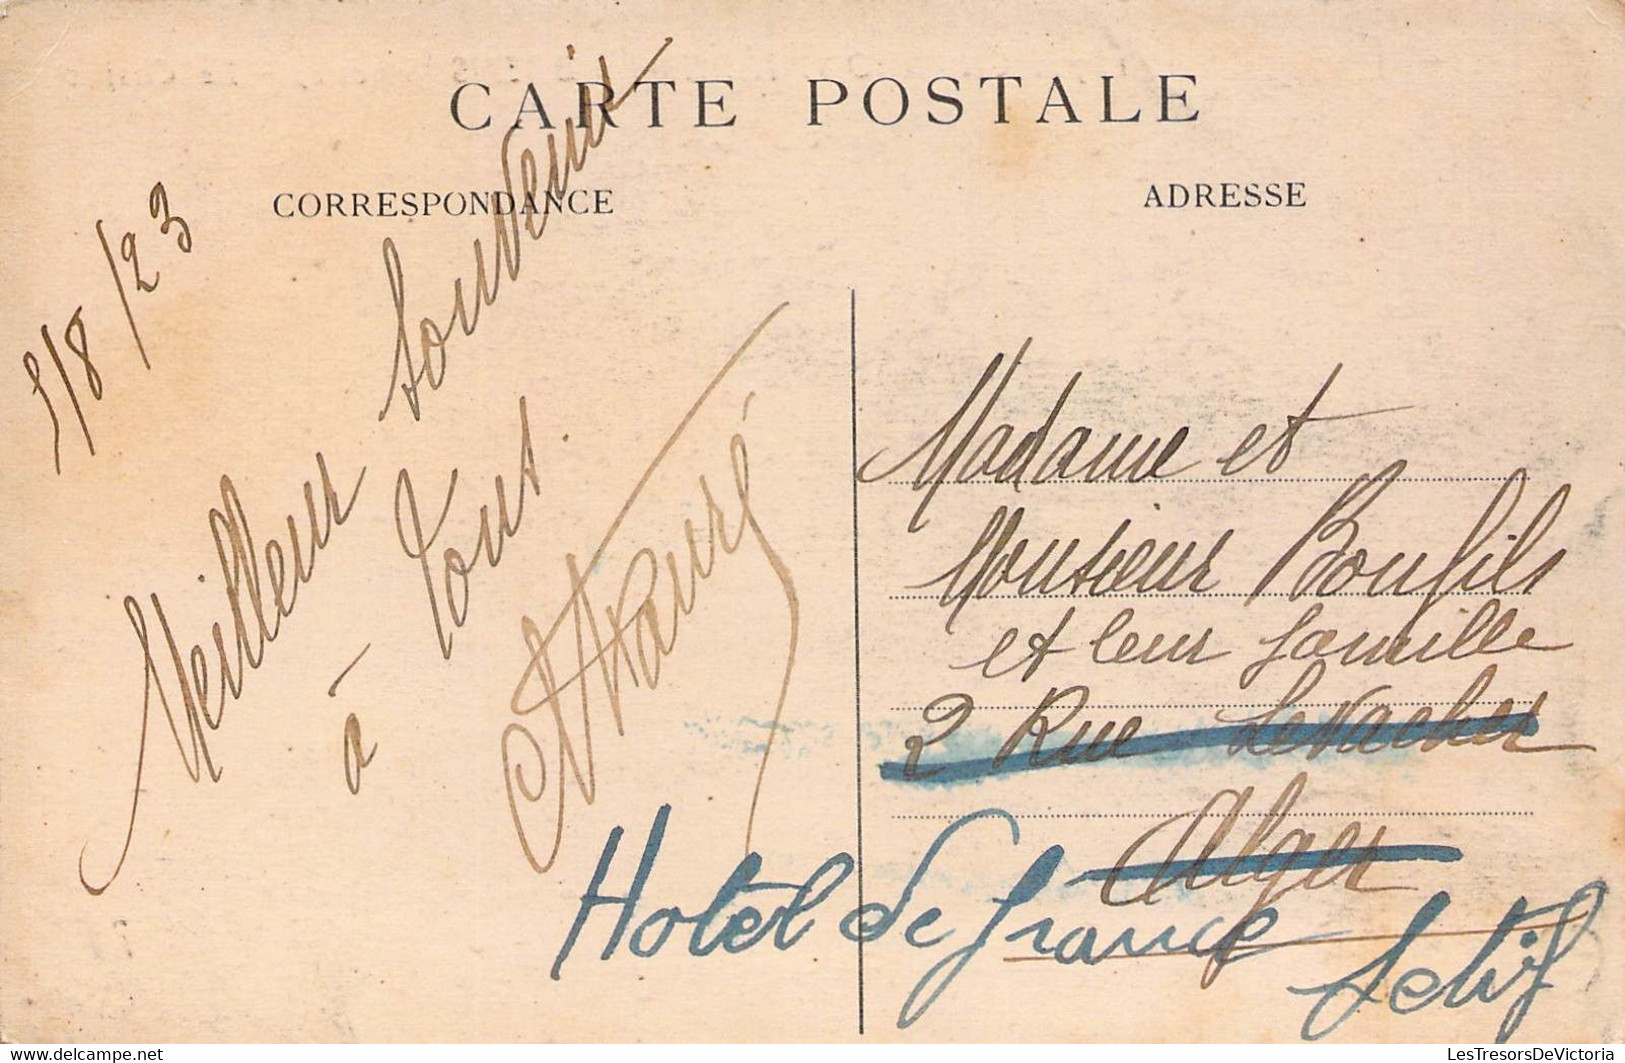 CARTE POSTALE
CORRESPONDANCE
ADRESSE
5/8/23
Meilleur souvenir
à tous.
Madame et
Monsieur Bonfils
et leur famille
2 Rue Levacher
Alger
Hotel de france
Setif
LesTresorsDeVictoria
www.delcampe.net